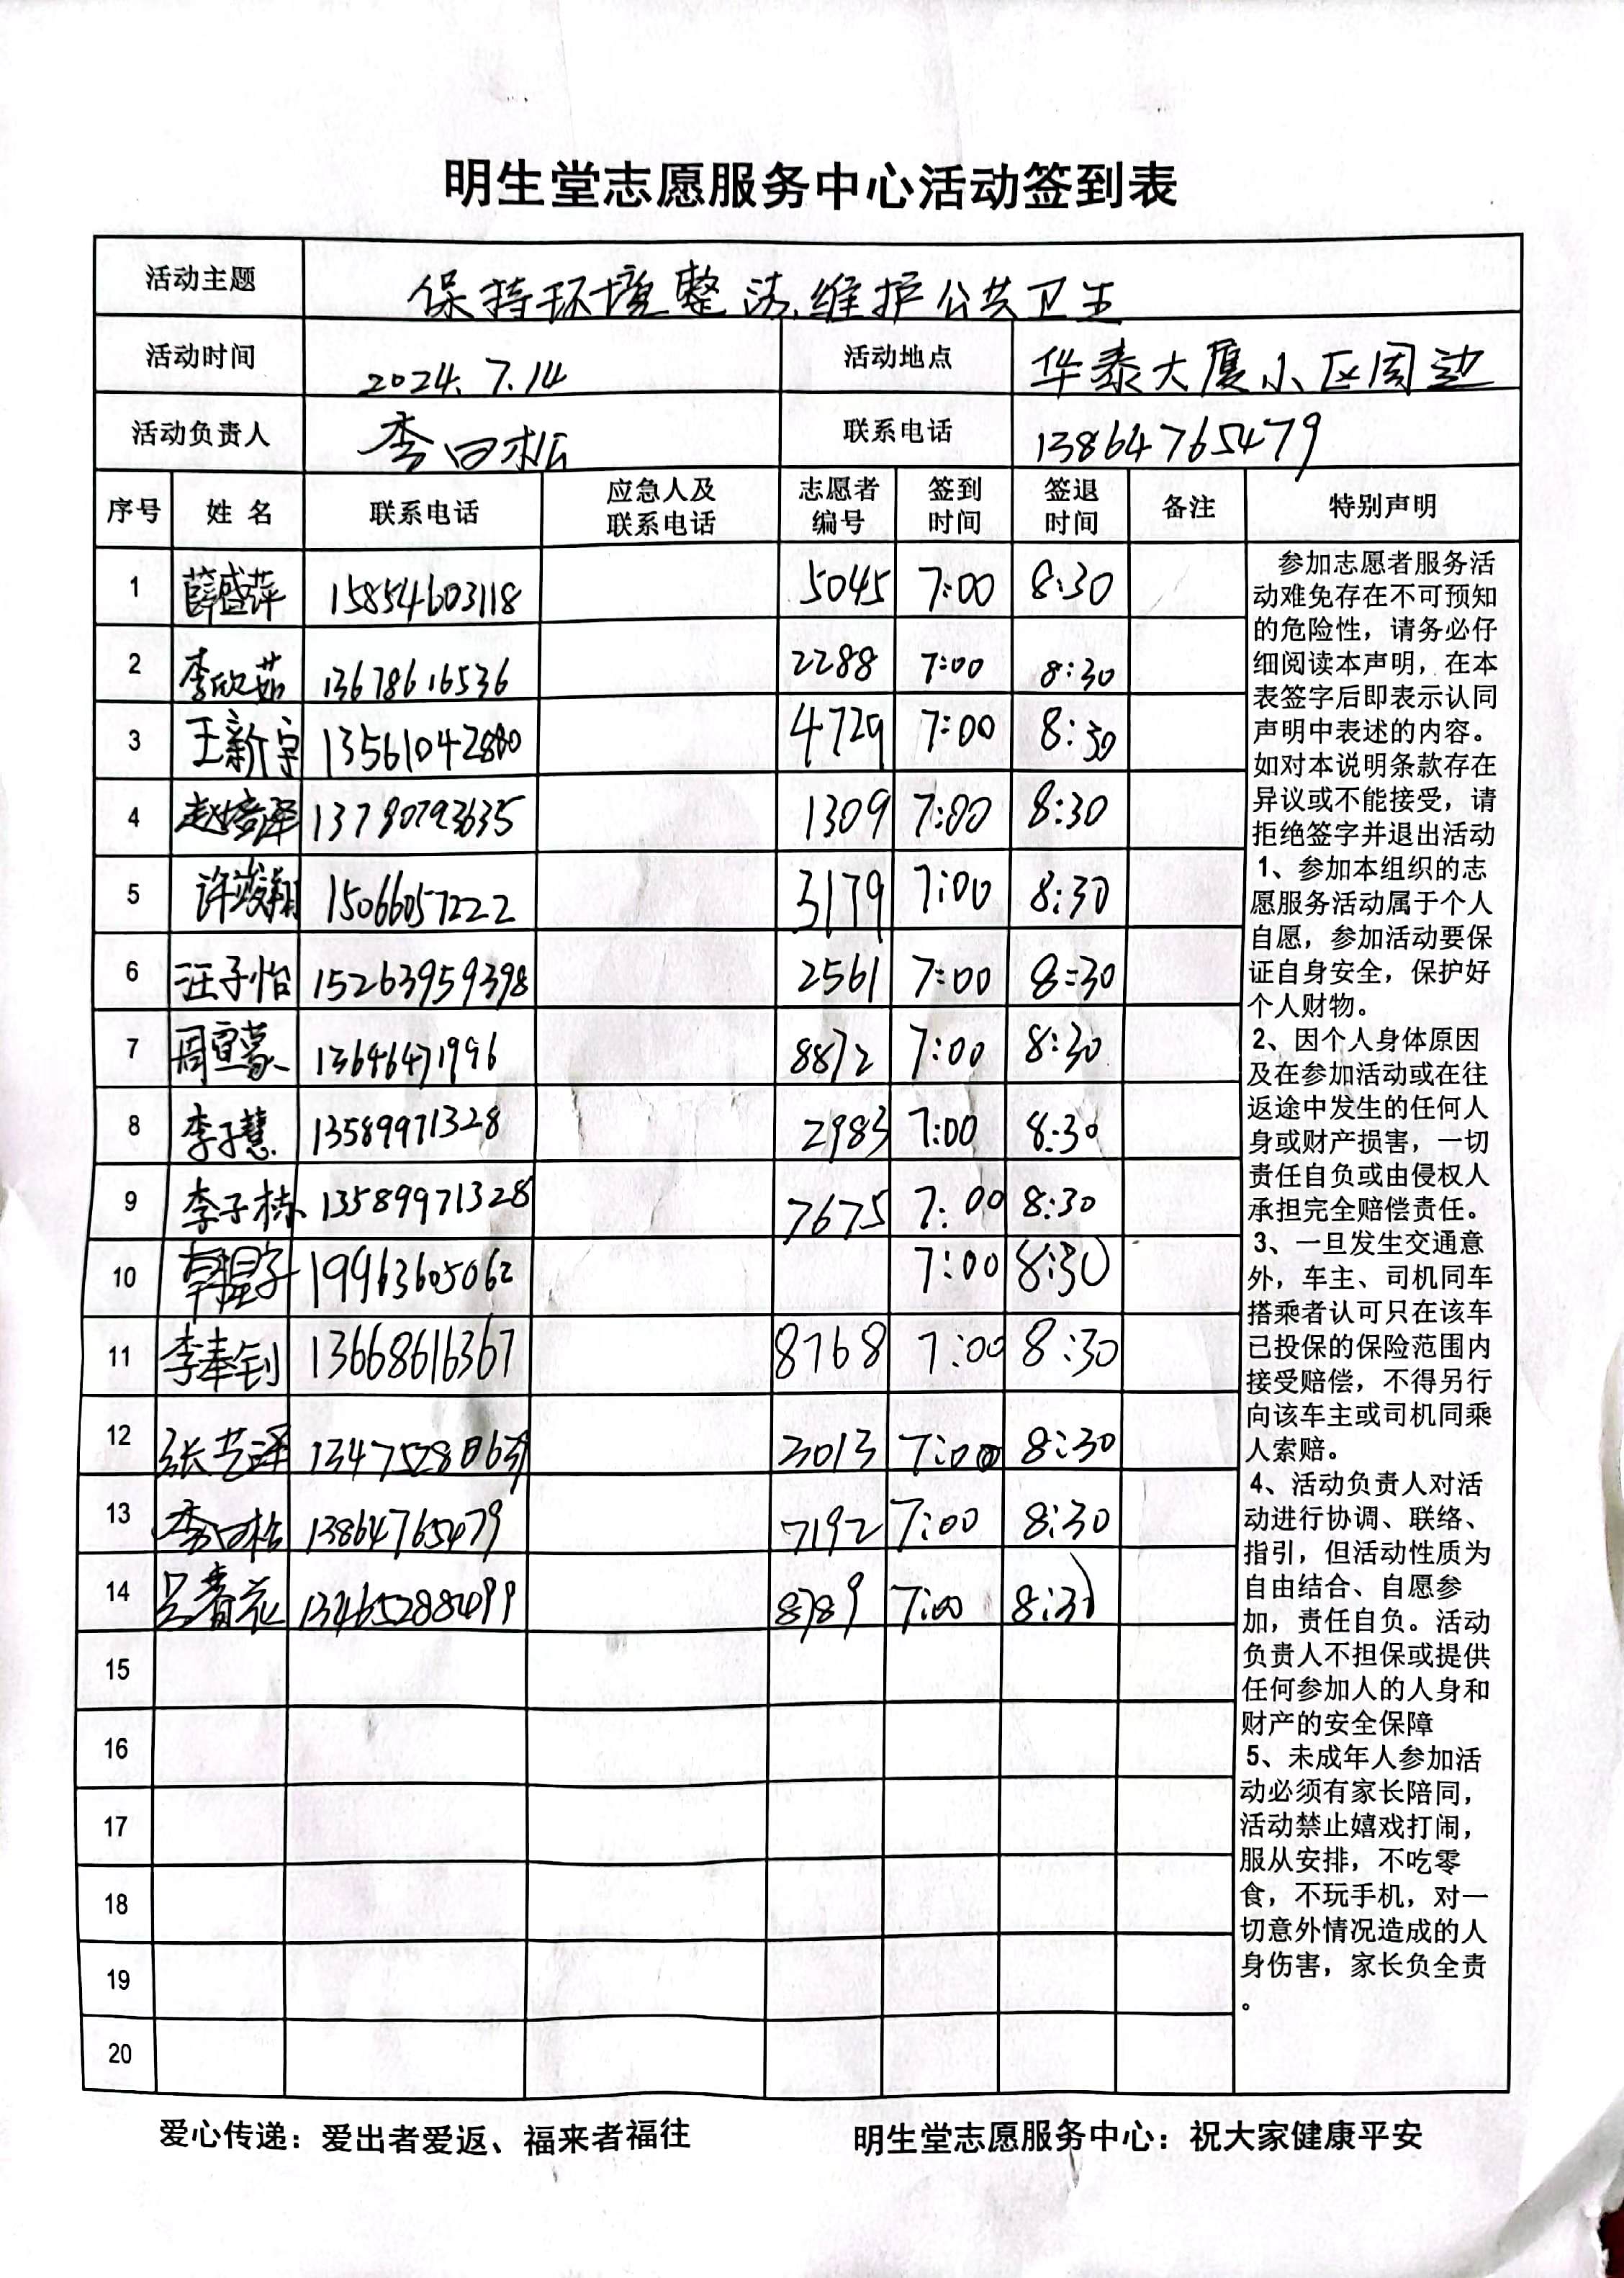 明生堂志愿服务中心活动签到表
活动主题 保持环境整洁,维护公共卫生
活动时间 2024.7.14 活动地点 华泰大厦小区周边
活动负责人 李曰松 联系电话 13864765479
序号 姓名 联系电话 应急人及联系电话 志愿者编号 签到时间 签退时间 备注 特别声明
1 薛盛萍 15854603118 5045 7:00 8:30
2 李欣茹 13678616536 2288 7:00 8:30
3 王新宇 13561042880 4729 7:00 8:30
4 13780793635 1309 7:00 8:30
5 许竣翔 15066057222 3179 7:00 8:30
6 汪子怡 15263959398 2561 7:00 8:30
7 周宣蒙 13646471996 8872 7:00 8:30
8 李子慧 13589971328 2983 7:00 8:30
9 李子栋 13589971328 7675 7:00 8:30
10 19963605062 7:00 8:30
11 李奉钊 13668616367 8768 7:00 8:30
12 张艺译 3013 7:00 8:30
13 李曰松 13864765479 7192 7:00 8:30
14 吴春花 8789 7:00 8:30
15
16
17
18
19
20
参加志愿者服务活
动难免存在不可预知
的危险性，请务必仔
细阅读本声明，在本
表签字后即表示认同
声明中表述的内容。
如对本说明条款存在
异议或不能接受，请
拒绝签字并退出活动
1、参加本组织的志
愿服务活动属于个人
自愿，参加活动要保
证自身安全，保护好
个人财物。
2、因个人身体原因
及在参加活动或在往
返途中发生的任何人
身或财产损害，一切
责任自负或由侵权人
承担完全赔偿责任。
3、一旦发生交通意
外，车主、司机同车
搭乘者认可只在该车
已投保的保险范围内
接受赔偿，不得另行
向该车主或司机同乘
人索赔。
4、活动负责人对活
动进行协调、联络、
指引，但活动性质为
自由结合、自愿参
加，责任自负。活动
负责人不担保或提供
任何参加人的人身和
财产的安全保障
5、未成年人参加活
动必须有家长陪同，
活动禁止嬉戏打闹，
服从安排，不吃零
食，不玩手机，对一
切意外情况造成的人
身伤害，家长负全责
。
爱心传递：爱出者爱返、福来者福往 明生堂志愿服务中心：祝大家健康平安